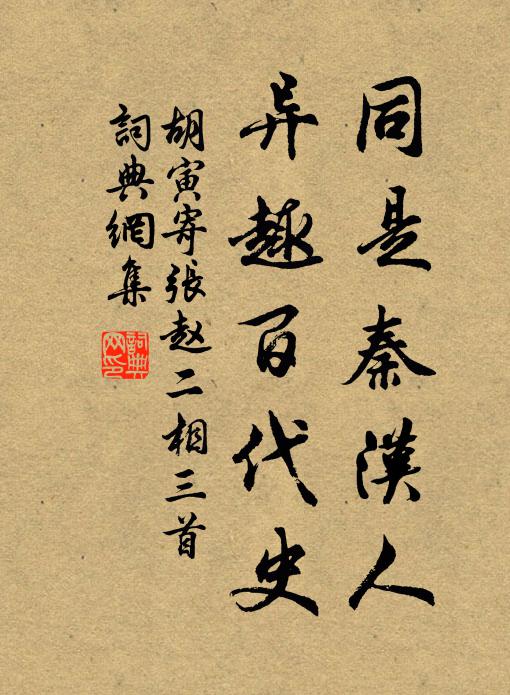 同是秦漢人
异趣百代史
胡寅寄張赵二相三首
詞典網集
詞典網印